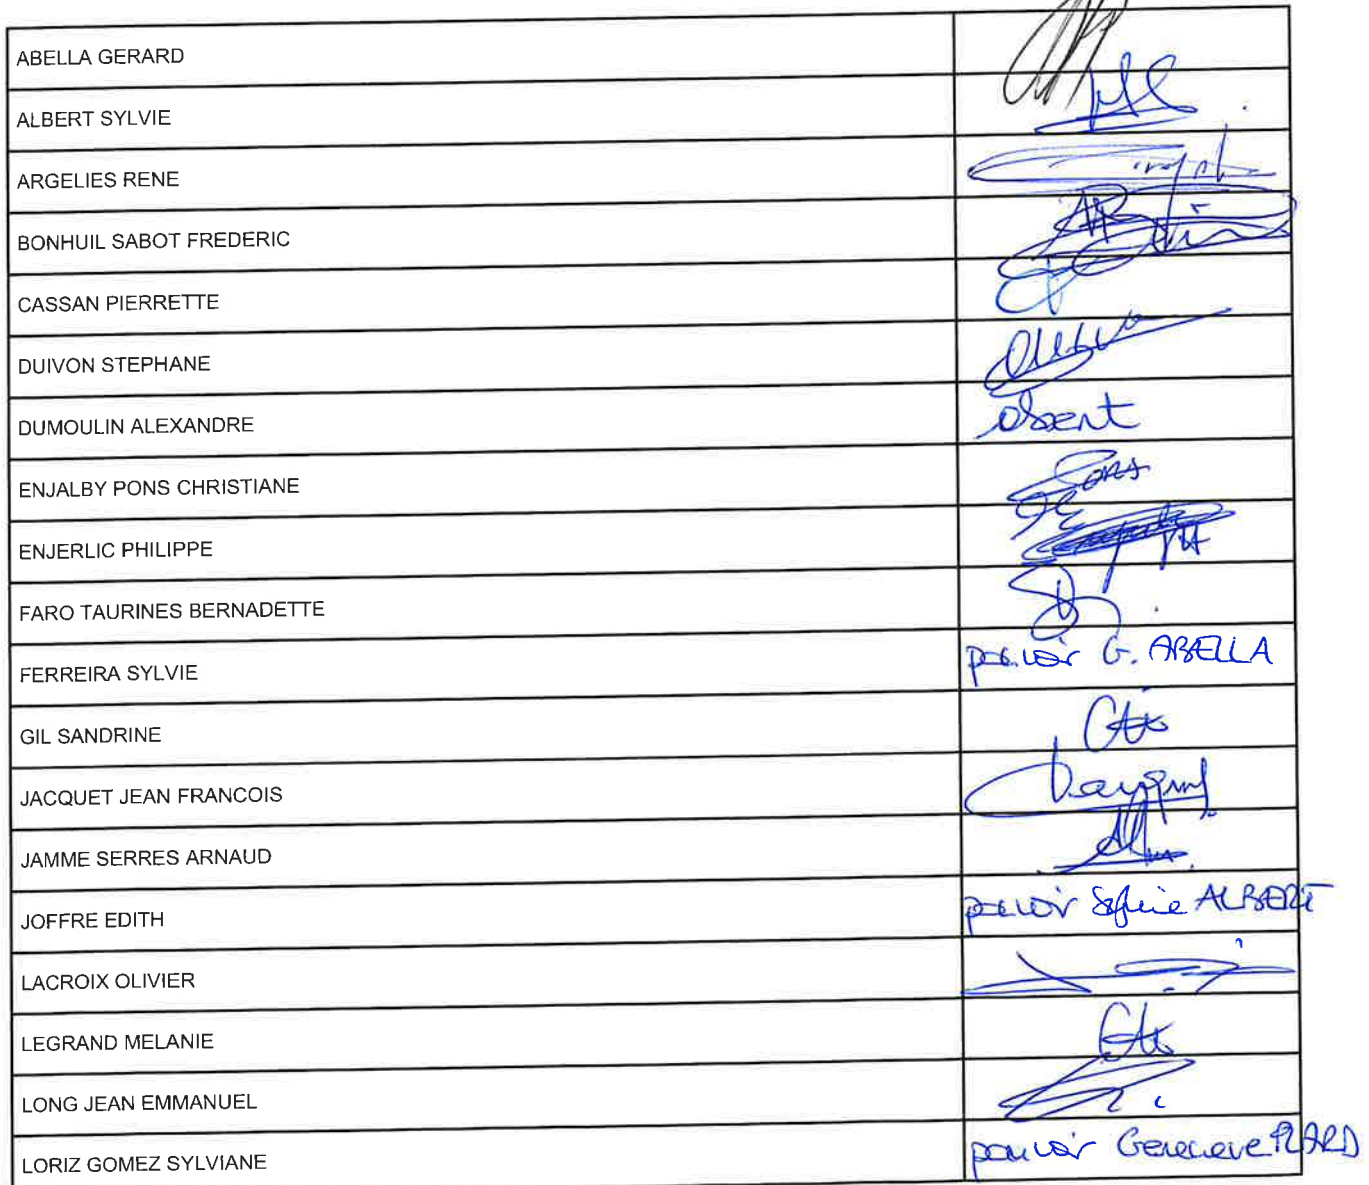 ABELLA GERARD
ALBERT SYLVIE
ARGELIES RENE
BONHUIL SABOT FREDERIC
CASSAN PIERRETTE
DUIVON STEPHANE
DUMOULIN ALEXANDRE absent
ENJALBY PONS CHRISTIANE Pons
ENJERLIC PHILIPPE
FARO TAURINES BERNADETTE
FERREIRA SYLVIE pouvoir G. ABELLA
GIL SANDRINE
JACQUET JEAN FRANCOIS
JAMME SERRES ARNAUD
JOFFRE EDITH pouvoir Sylvie ALBERT
LACROIX OLIVIER
LEGRAND MELANIE
LONG JEAN EMMANUEL
LORIZ GOMEZ SYLVIANE pouvoir Genevieve